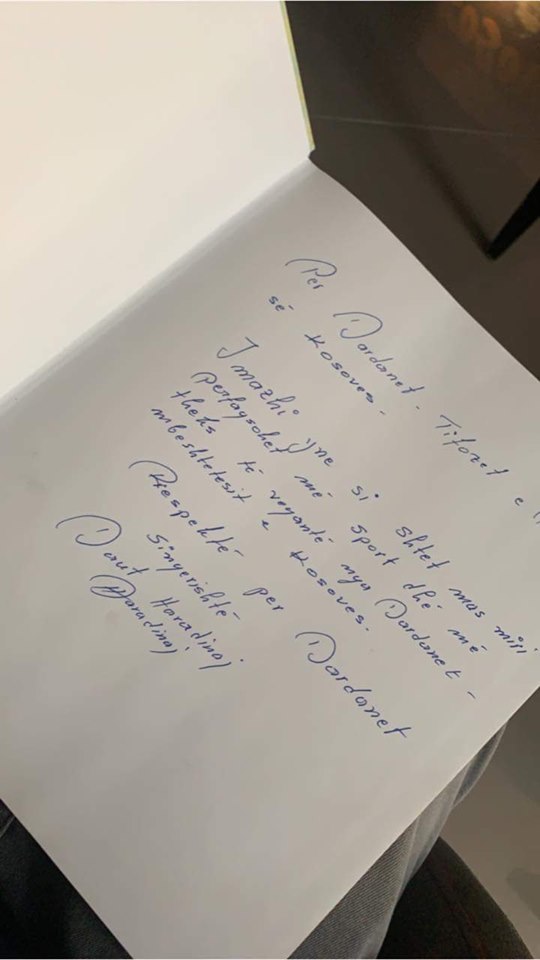 Per Dardanet - Tifozet e
së Kosoves.
Imazhi yne si shtet mas miri
perfaqsohet me sport dhe me
theks të veqantë nga Dardanet -
mbeshtetesit e Kosoves.
Respektë per Dardanet
Singerishtë
Daut Haradinaj
Haradinaj